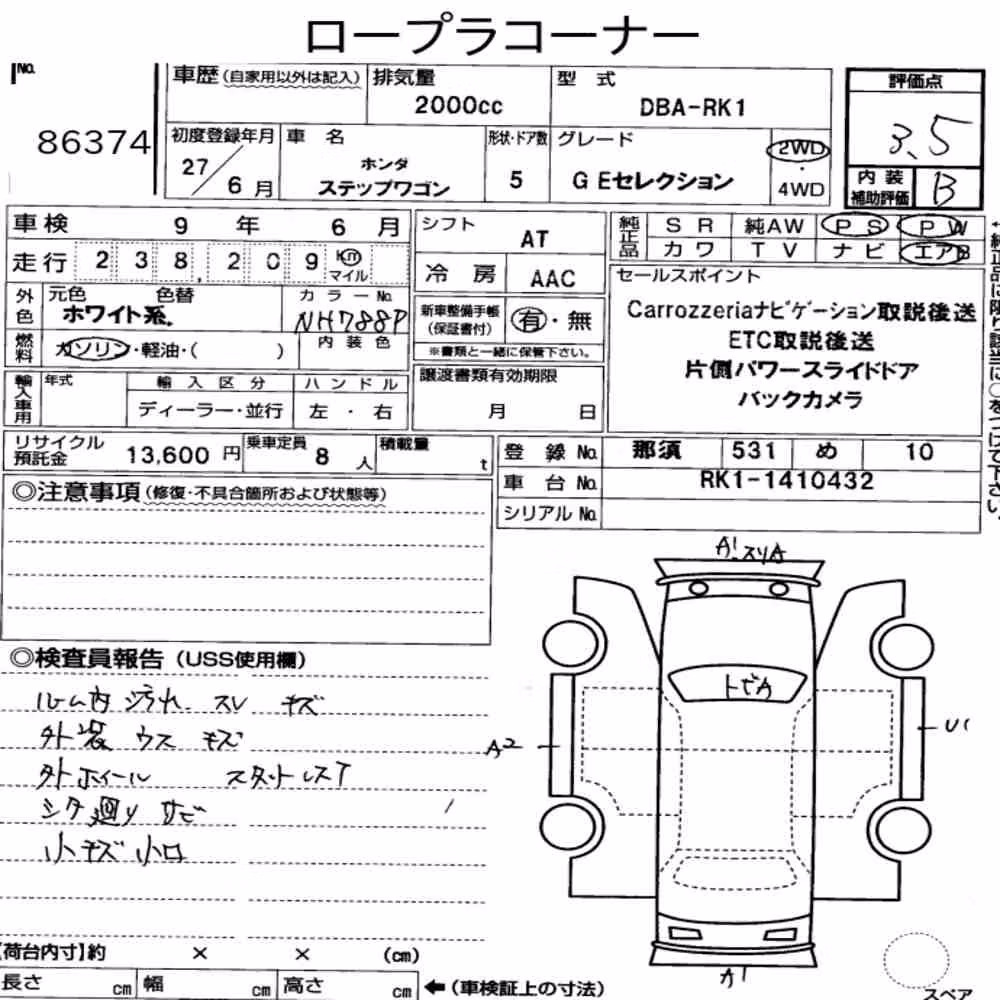 ロープラコーナー
No. 86374
車歴(自家用以外は記入) 排気量 2000cc 型式 DBA-RK1
初度登録年月 27/6月 車名 ホンダ ステップワゴン 形状・ドア数 5 グレード GEセレクション 2WD・4WD
評価点 3.5
内装補助評価 B
車検 9年 6月
走行 238,209 Km マイル
シフト AT
冷房 AAC
純正品 SR 純AW PS PW
カワ TV ナビ エアB
外色 元色 色替 ホワイト系. カラーNo. NH788P
燃料 ガソリン・軽油・( ) 内装色
新車整備手帳(保証書付) 有・無
※書類と一緒に保管下さい。
セールスポイント
Carrozzeriaナビゲーション取説後送
ETC取説後送
片側パワースライドドア
バックカメラ
輸入車用 年式 輸入区分 ハンドル
ディーラー・並行 左・右
譲渡書類有効期限
月 日
リサイクル預託金 13,600円 乗車定員 8人 積載量 t
登録No. 那須 531 め 10
車台No. RK1-1410432
シリアルNo.
◎注意事項(修復・不具合箇所および状態等)
◎検査員報告(USS使用欄)
ルーム内 汚れ スレ キズ
外装 ウス キズ
外ホイール
シタ廻り サビ
小キズ 小凹
A1 スリA
トビA
A2
U1
A1
【荷台内寸】約 × × (cm)
長さ cm 幅 cm 高さ cm ←(車検証上の寸法)
スペア